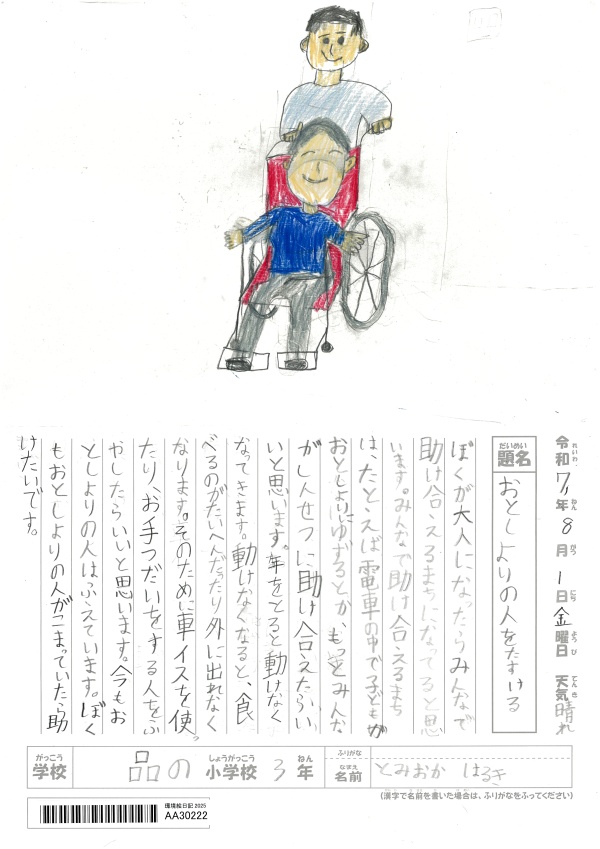 令和7年8月1日金曜日 天気晴れ
れいわ ねん がつ にち ようび てんき
だいめい
題名
おとしよりの人をたすける
ぼくが大人になったらみんなで
助け合えるまちになってると思
います。みんなで助け合えるまち
は、たとえば電車の中で子どもが
おとしよりにゆずるとか、もっとみんな
がしんせつに助け合えたらいい
いと思います。年をとると動けなく
なってきます。動けなくなると、食
べるのがたいへんだったり外に出れなく
なります。そのために車イスを使っ
たり、お手つだいをする人をふ
やしたらいいと思います。今もお
としよりの人はふえています。ぼく
もおとしよりの人がこまっていたら助
けたいです。
がっこう
学校
品の
しょうがっこう
小学校
3
ねん
年
ふりがな
なまえ
名前
とみおか はるき
(漢字で名前を書いた場合は、ふりがなをふってください)
環境絵日記 2025
AA30222